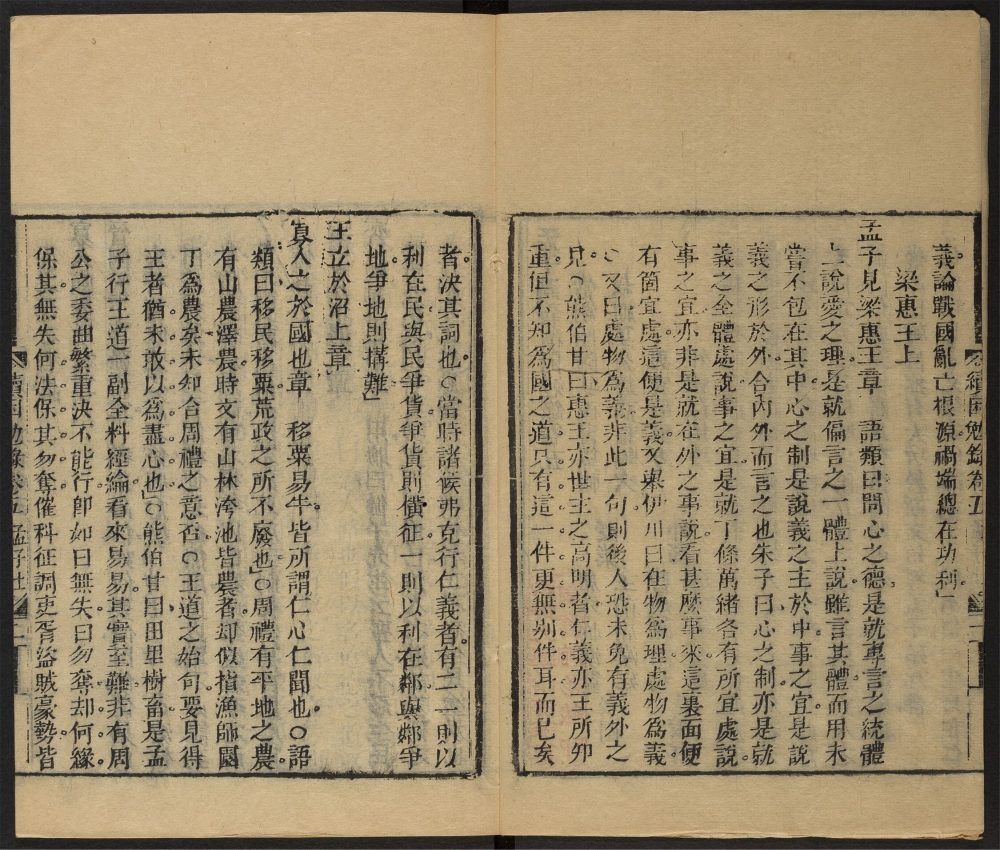 義論戰國亂亡根源禍端總在功利」
梁惠王上
孟子見梁惠王章　語類曰問心之德是就專言之統體
上說愛之理是就偏言之一體上說雖言其體而用未
嘗不包在其中心之制是說義之主於中事之宜是說
義之形於外合內外而言之也朱子曰心之制亦是就
義之全體處說事之宜是就丁條萬緒各有所宜處說
事之宜亦非是就在外之事說看甚麼事來這裏面便
有箇宜處這便是義又舉伊川曰在物爲理處物爲義
○又曰處物爲義非此一句則後人恐未免有義外之
見○熊伯甘曰惠王亦世主之高明者仁義亦王所夘
重但不知爲國之道只有這一件更無别件耳而已矣
續困勉錄卷五
者決其詞也○當時諸候弗克行仁義者有二一則以
利在民與民爭貨爭貨則橫征一則以利在鄰與鄰爭
地爭地則搆難」
王立於沼上章
寡人之於國也章　移粟易牛皆所謂仁心仁聞也○語
類曰移民移粟荒政之所不廢也」○周禮有平地之農
有山農澤農時文有山林洿池皆農者却似指漁師園
丁爲農矣未知合周禮之意否○王道之始句要見得
王者猶未敢以爲盡心也」○熊伯甘曰田里樹畜是孟
子行王道一副全料經綸看來易易其實至難非有周
公之委曲繁重決不能行卽如曰無失曰勿奪却何緣
保其無失何法保其勿奪催科征調吏胥盜賊豪勢皆
續困勉錄卷五 孟子 二